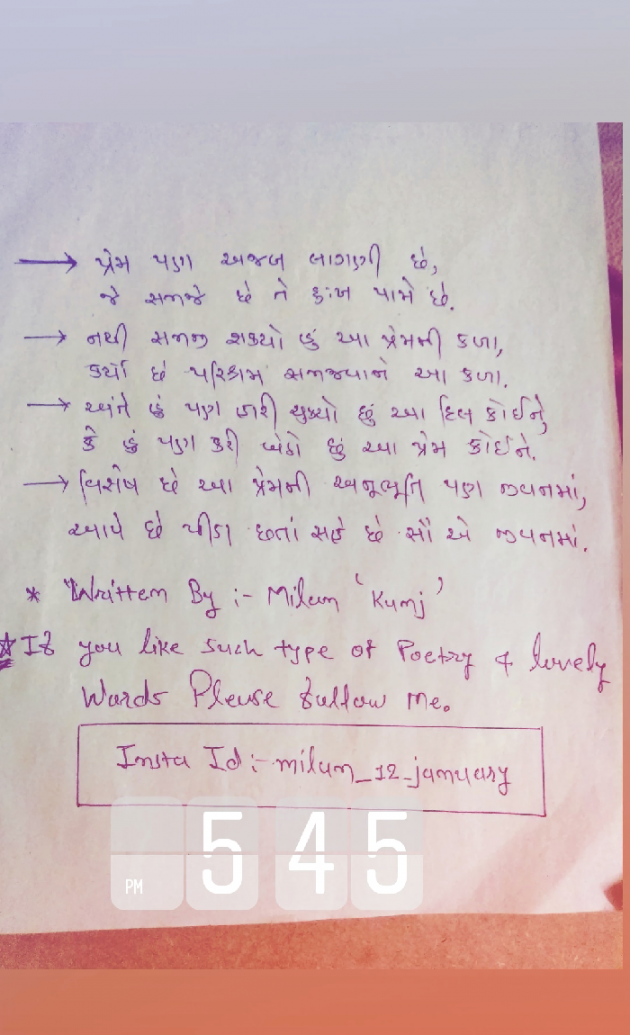 → પ્રેમ પણ અજબ લાગણી છે,
જે સમજે છે તે દુઃખ પામે છે.
→ નથી સમજી શક્યો હું આ પ્રેમની કળા,
કર્યો છે પરિશ્રમ સમજવાને આ કળા.
→ અંતે હું પણ હારી ચુક્યો છું આ દિલ કોઈને,
કે હું પણ કરી બેઠો છું આ પ્રેમ કોઈને.
→ વિશેષ છે આ પ્રેમની અનૂભૂતિ પણ જીવનમાં,
આપે છે પીડા છતાં સહે છે સૌ એ જીવનમાં.
* Written By :- Milan 'Kunj'
* If you like such type of Poetry & lovely
Words Please follow Me.
Insta Id :- milan_12_january
PM 5 45